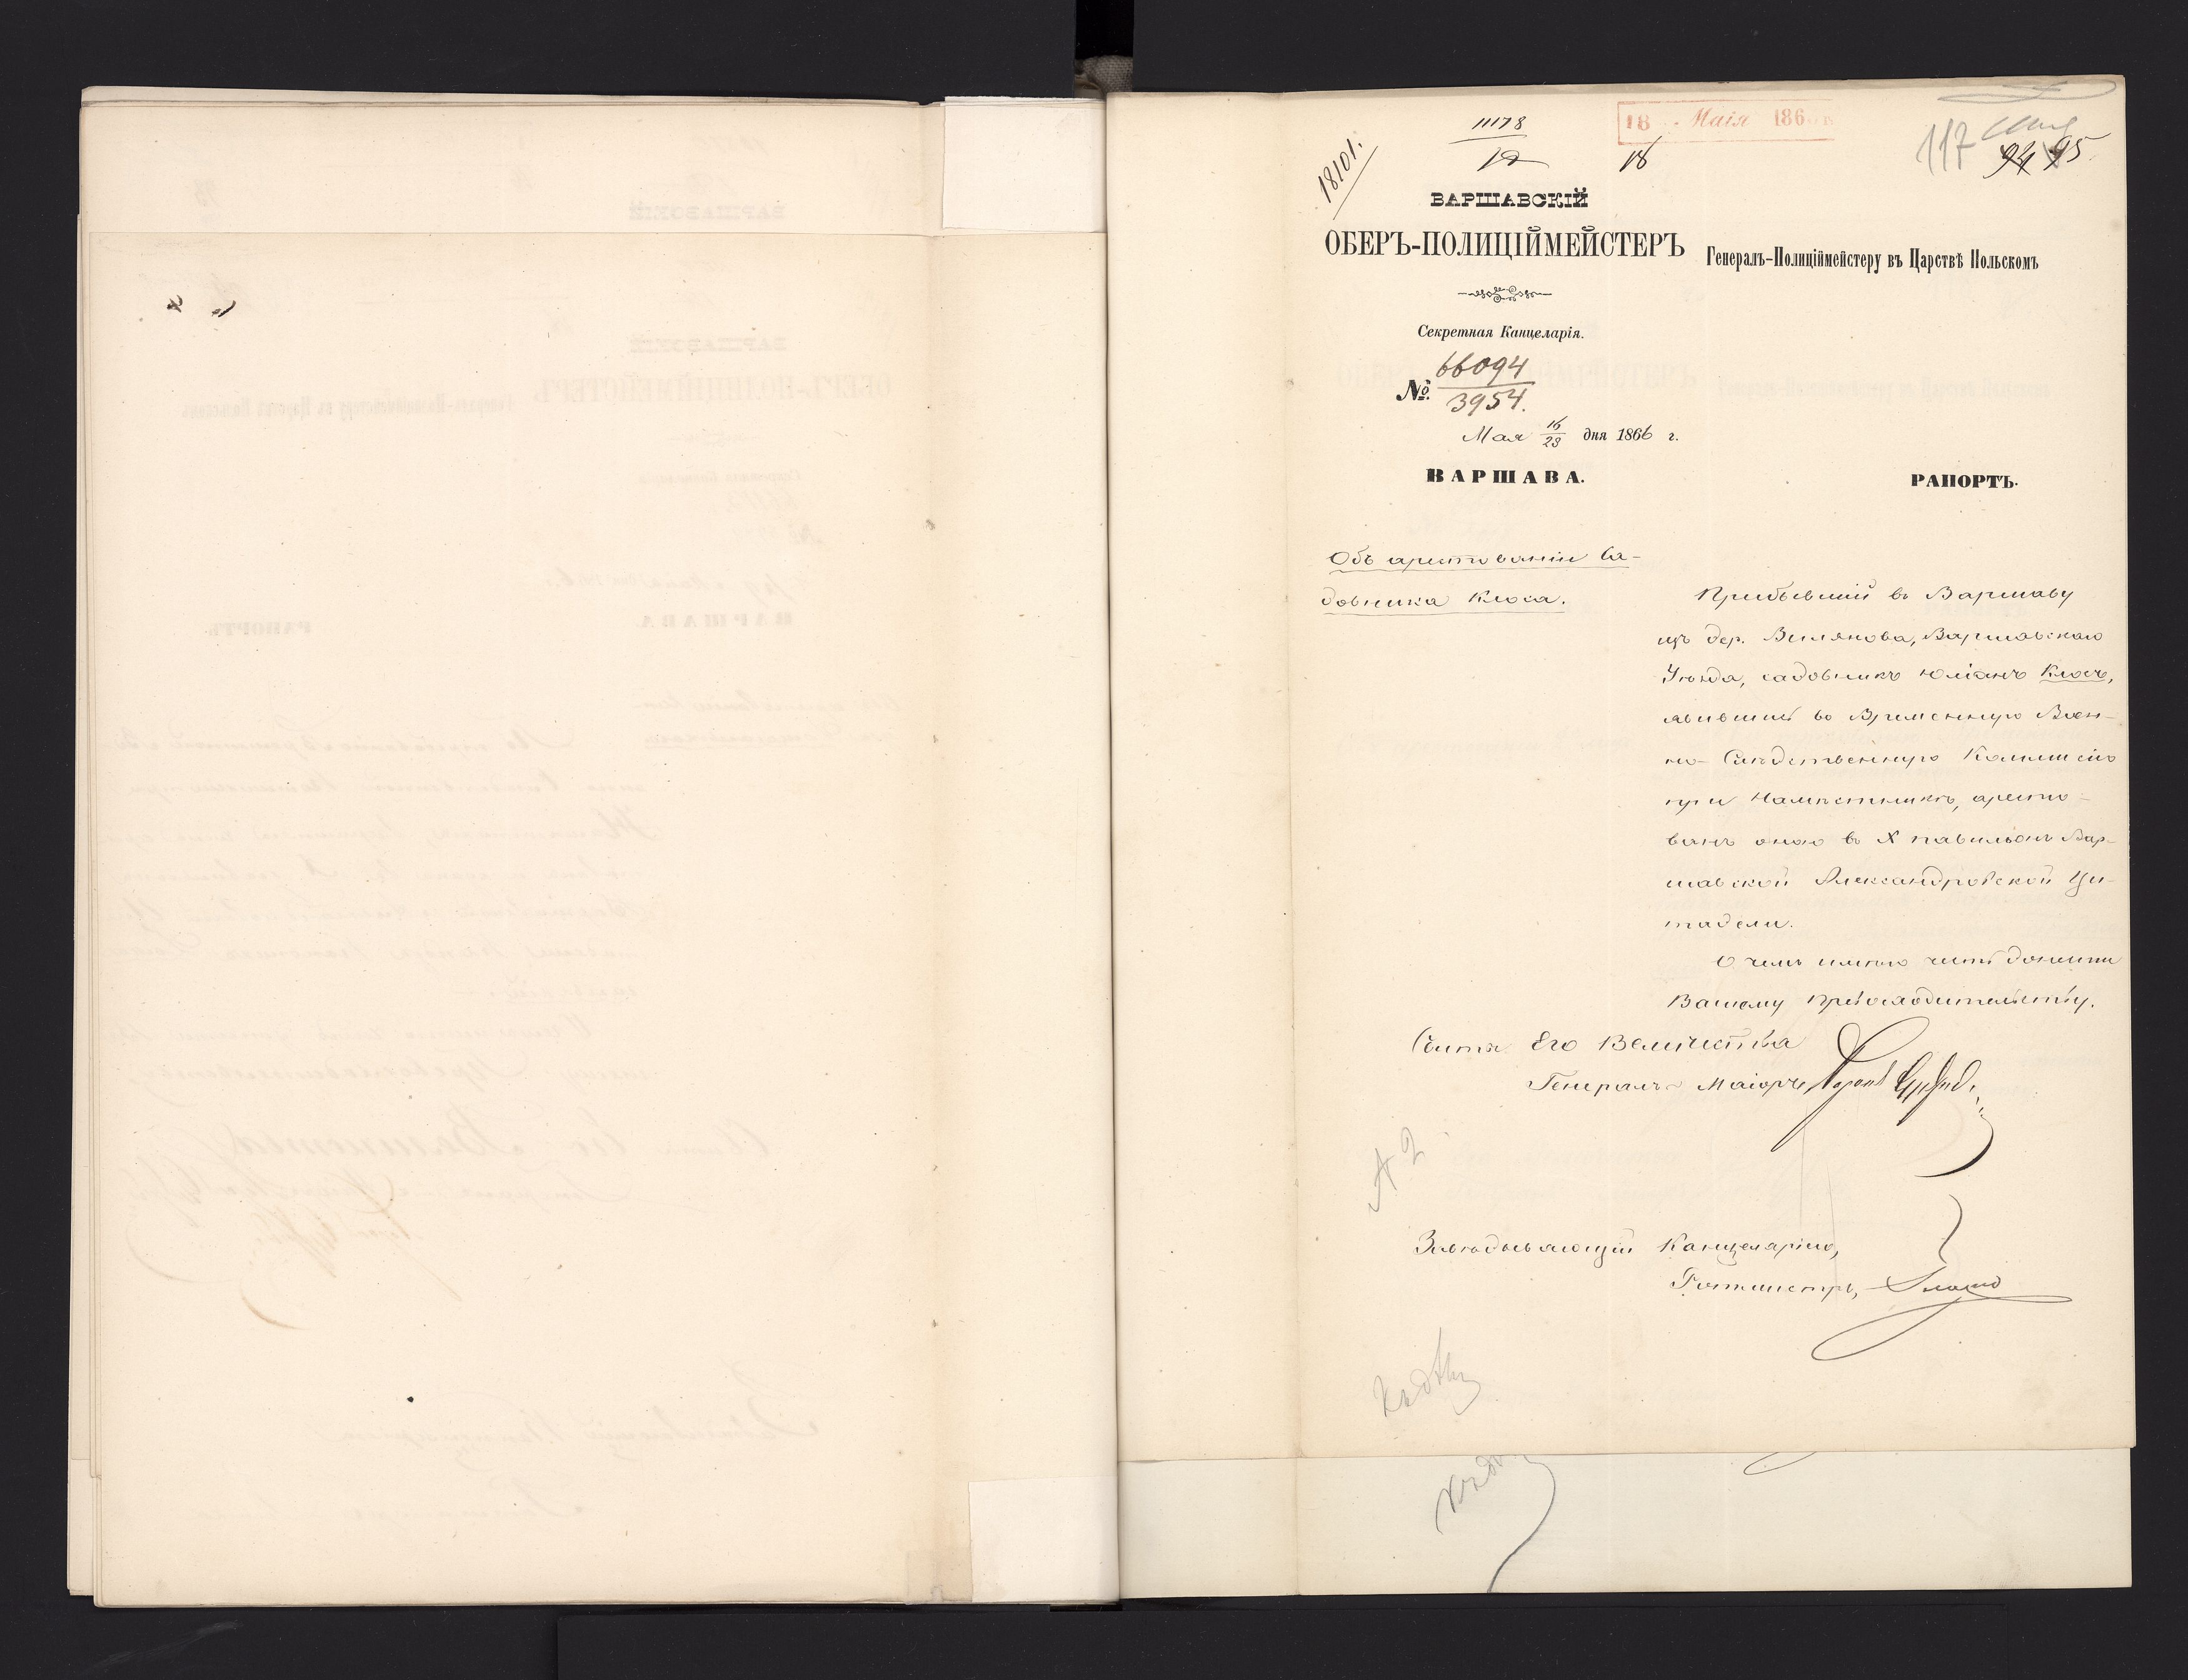 11178
18101.
12
18
18 Маія 186
117
94 95.
ВАРШАВСКІЙ
ОБЕРЪ-ПОЛИЦІЙМЕЙСТЕРЪ
Генералъ-Полиціймейстеру въ Царствѣ Польскомъ
Секретная Канцелярія.
№ 66094
3954.
Мая 16/28 дня 1866 г.
ВАРШАВА.
РАПОРТЪ.
Объ арестованіи Са-
довника Клоса.
Прибывшій въ Варшаву
изъ дер. Вилянова, Варшавскаго
Уѣзда, садовникъ Юліанъ Клосъ,
явившись во Временную Воен-
но-Слѣдственную Коммисію
при Намѣстникѣ, аресто-
ванъ оною въ X павильонъ Вар-
шавской Александровской Ци-
тадели.
О чемъ имѣю честь донести
Вашему Превосходительству.
Свиты Его Величества
Генералъ-Маіоръ, Баронъ
Завѣдывающій Канцеляріею,
Ротмистръ,
Къ дѣлу